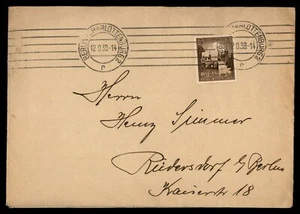 BERLIN-CHARLOTTENBURG 2
12.11.38-14
BERLIN-CHARLOTTENBURG 2
12.11.38-14
Herrn
Heinz Simmer
Rüdersdorf b/Berlin
Kaiserstr 18